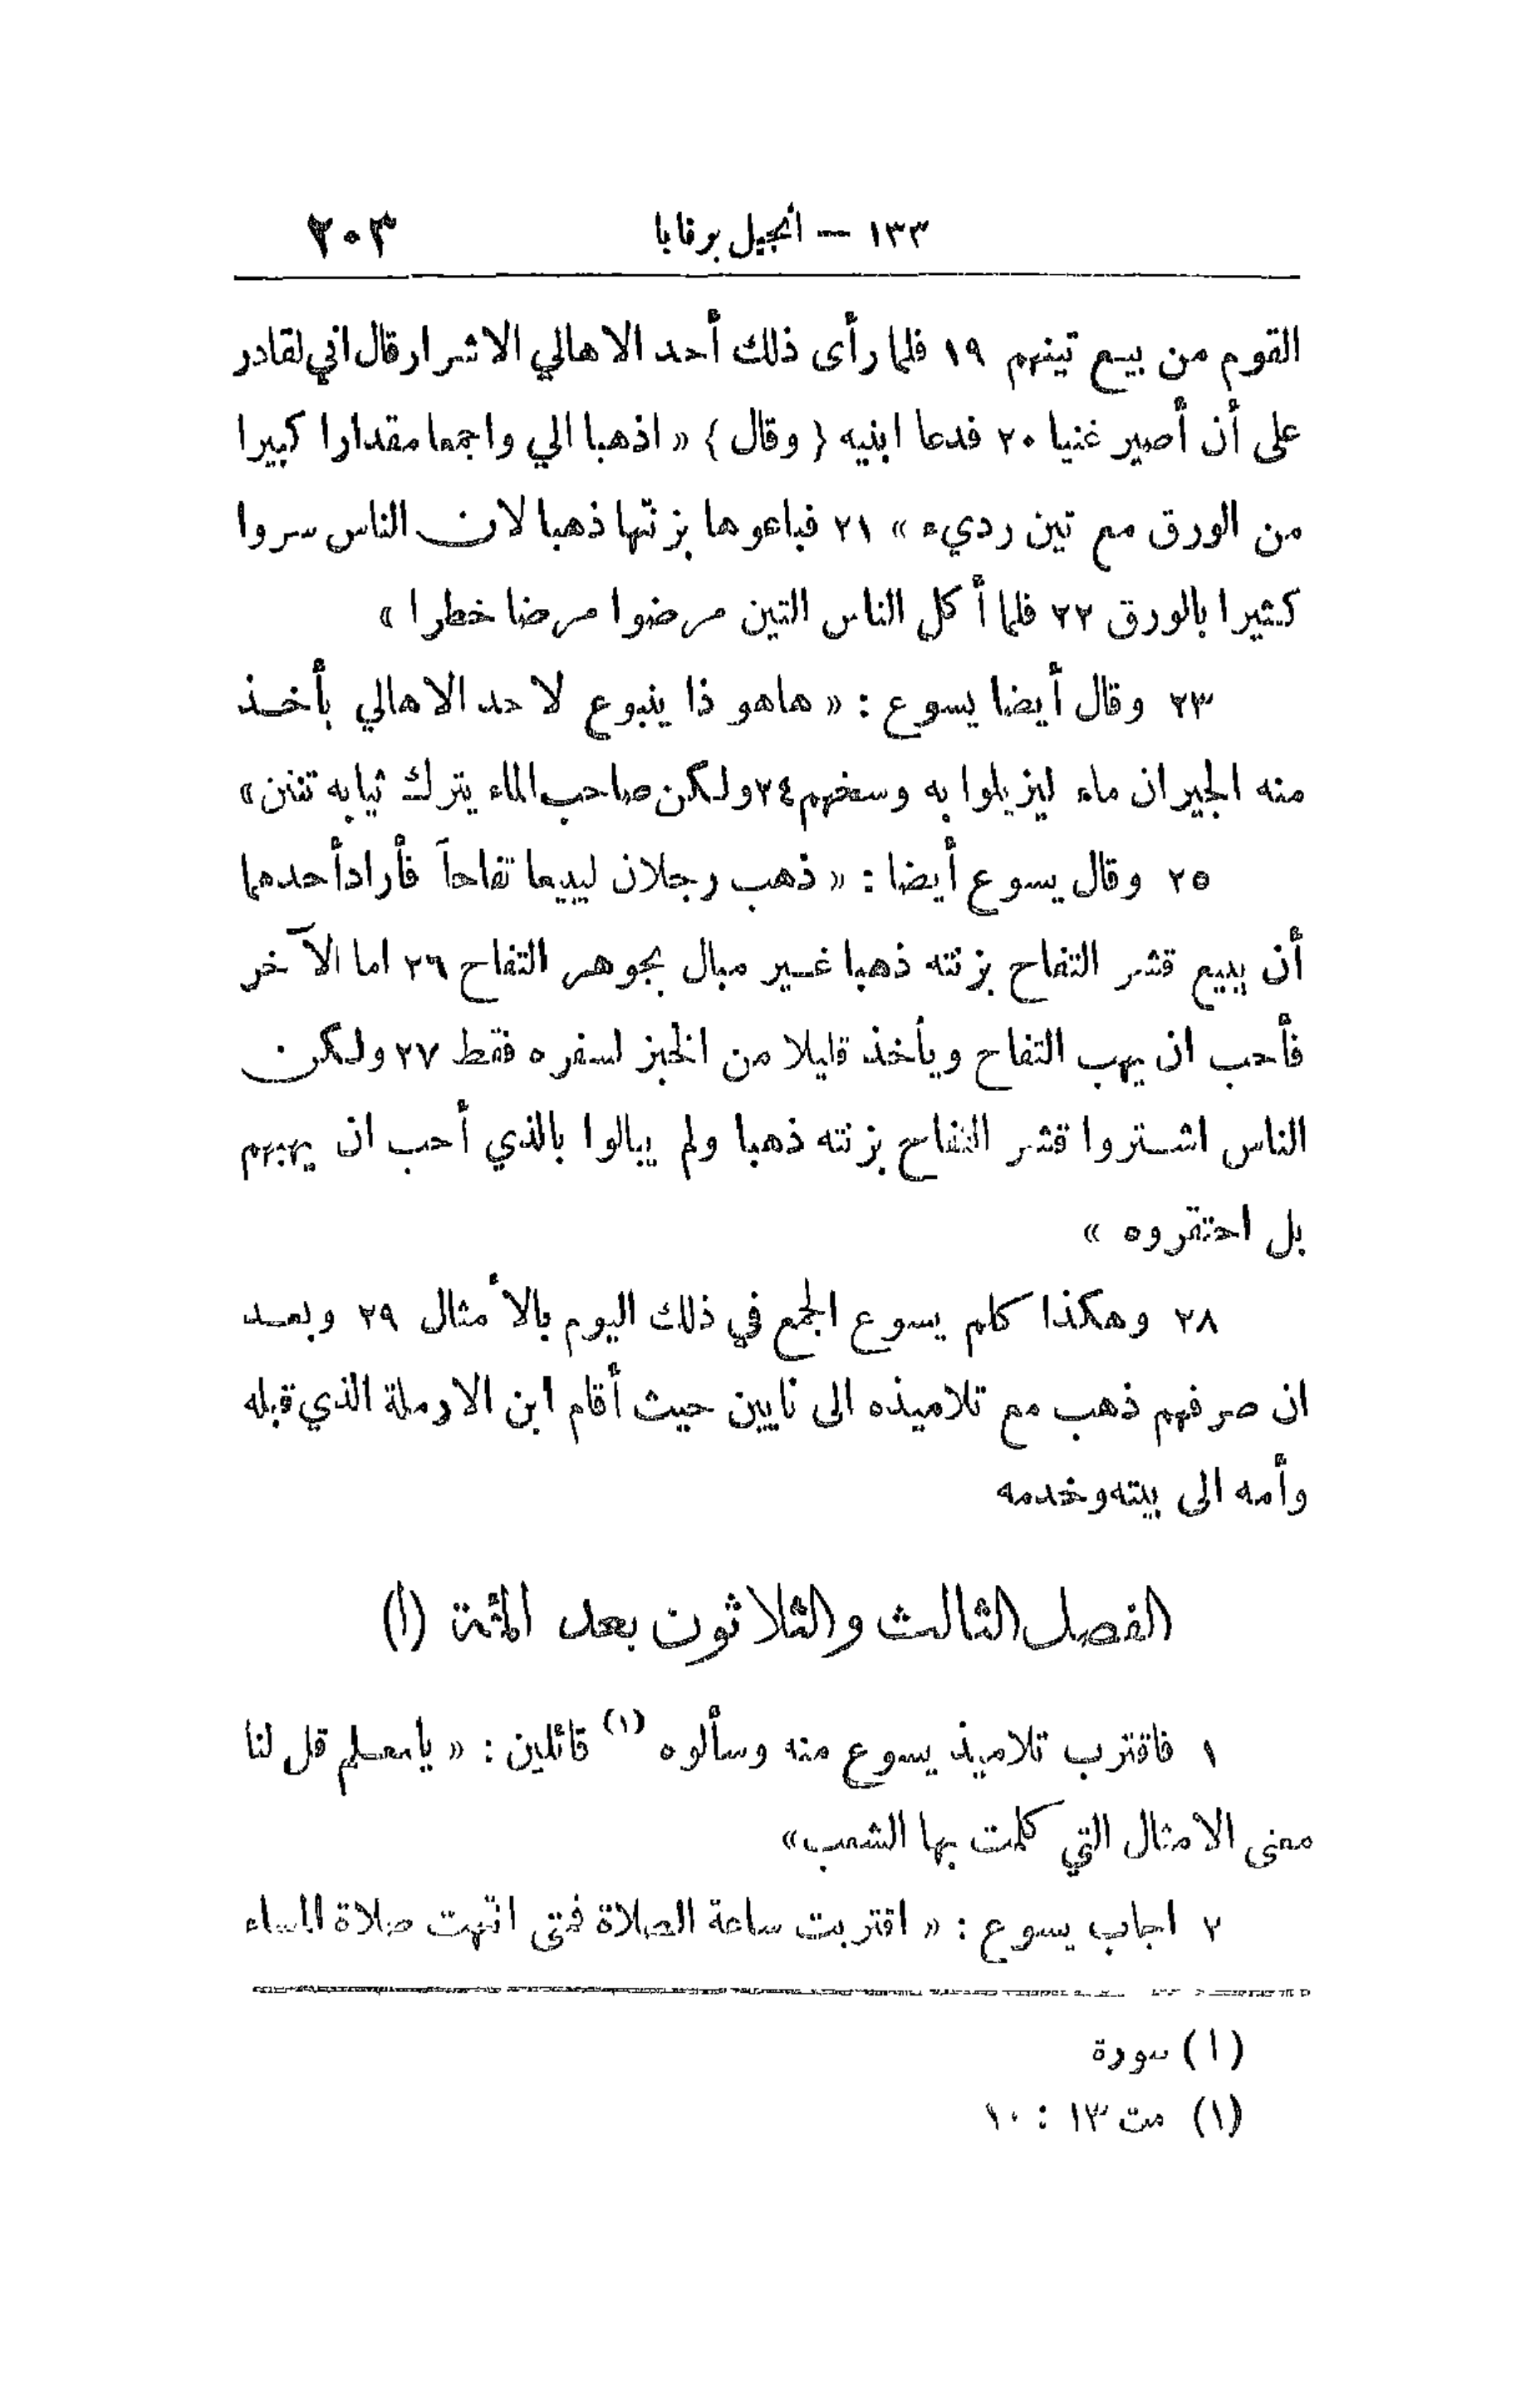 ١٣٣ — أنجيل برنابا ٢٠٣
القوم من بيع تينهم ١٩ فلما رأى ذلك أحد الاهالي الاشرار قال اني لقادر
على أن أصير غنيا ٢٠ فدعا ابنيه { وقال } « اذهبا الي واجمعا مقدارا كبيرا
من الورق مع تين رديء » ٢١ فباعوها بزنتها ذهبا لان الناس سروا
كثيرا بالورق ٢٢ فلما أكل الناس التين مرضوا مرضا خطرا »
٢٣ وقال أيضا يسوع : « هاهو ذا ينبوع لاحد الاهالي يأخذ
منه الجيران ماء ليزيلوا به وسخهم ٢٤ ولكن صاحب الماء يترك ثيابه تنتن »
٢٥ وقال يسوع أيضا : « ذهب رجلان ليبيعا تفاحاً فأراد أحدهما
أن يبيع قشر التفاح بزنته ذهبا غير مبال بجوهر التفاح ٢٦ اما الآخر
فأحب ان يهب التفاح ويأخذ قليلا من الخبز لسفره فقط ٢٧ ولكن
الناس اشتروا قشر التفاح بزنته ذهبا ولم يبالوا بالذي أحب ان يهبهم
بل احتقروه »
٢٨ وهكذا كلم يسوع الجمع في ذلك اليوم بالأمثال ٢٩ وبعد
ان صرفهم ذهب مع تلاميذه الى نايين حيث أقام ابن الارملة الذي قبله
وأمه الى بيته وخدمه
الفصل الثالث والثلاثون بعد المئة (أ)
١ فاقترب تلاميذ يسوع منه وسألوه (١) قائلين : « يا معلم قل لنا
معنى الامثال التي كلمت بها الشعب »
٢ اجاب يسوع : « اقتربت ساعة الصلاة فمتى انتهت صلاة المساء
(ا) سورة
(١) مت ١٣ : ١٠